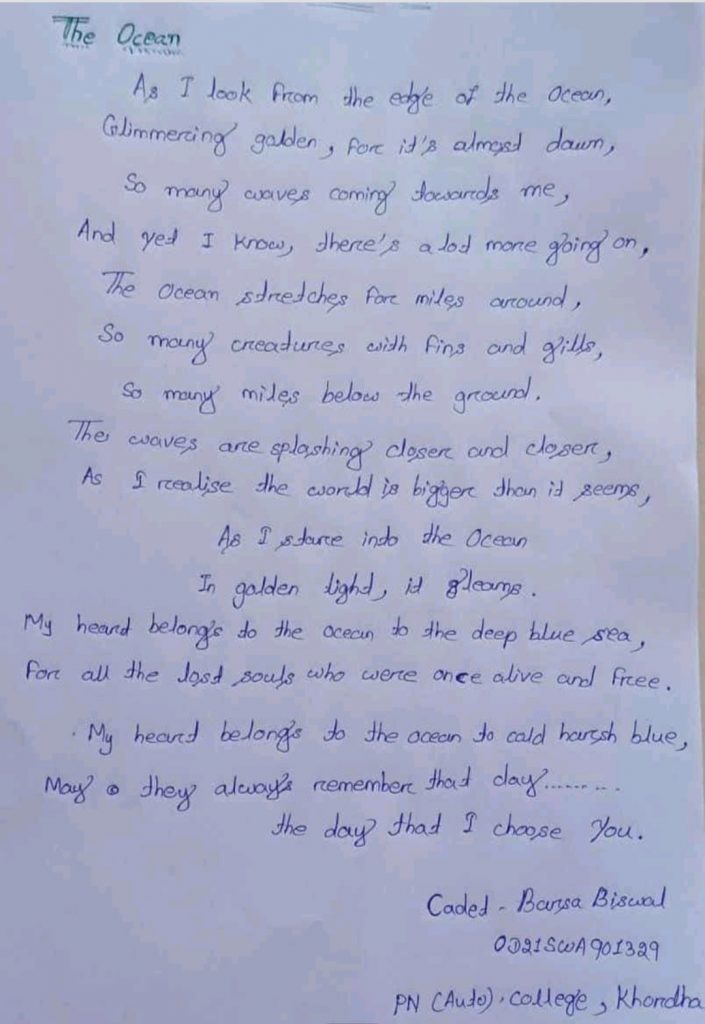 The Ocean
As I look from the edge of the ocean,
Glimmering golden, for it's almost dawn,
So many waves coming towards me,
And yet I know, there's a lot more going on,
The ocean stretches for miles around,
So many creatures with fins and gills,
So many miles below the ground.
The waves are splashing closer and closer,
As I realise the world is bigger than it seems,
As I stare into the Ocean
In golden light, it gleams.
My heart belong's to the ocean to the deep blue sea,
For all the lost souls who were once alive and free.
My heart belong's to the ocean to cold harsh blue,
May they always remember that day.........
the day that I choose you.
Cadet - Barsa Biswal
OD21SWA901329
PN (Auto). College, Khordha